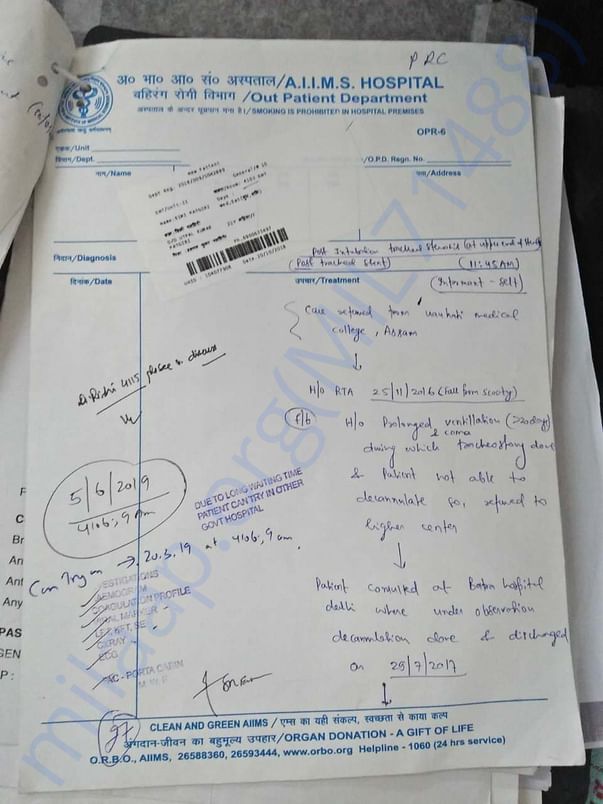 PRC
अ० भा० आ० सं० अस्पताल/A.I.I.M.S. HOSPITAL
बहिरंग रोगी विभाग /Out Patient Department
अस्पताल के अन्दर धूम्रपान मना है।/SMOKING IS PROHIBITED IN HOSPITAL PREMISES
OPR-6
एकक/Unit
विभाग/Dept.
/O.P.D. Regn. No.
नाम/Name
पता/Address
New Patient
General
निदान/Diagnosis
Post Intubation tracheal stenosis (at upper end of
(Post tracheal stent) (11:45AM)
दिनांक/Date
उपचार/Treatment
(Informant - self)
Case refered from Gauhati medical
college, Assam
↓
H/O RTA 25/11/2016 (Fall from scooty)
f/b H/O Prolonged ventillation (>20days)
& coma
during which tracheostomy done
& Patient not able to
decannulate so, refered to
higher center
↓
Patient consulted at Batra hospital
delhi where under observation
decannulation done & discharged
on 25/7/2017
↓
Dr Rishi 4115 please discuss
5/6/2019
4106, 9am
DUE TO LONG WAITING TIME
PATIENT CAN TRY IN OTHER
GOVT HOSPITAL
Can Try on → 20.3.19 at 4106, 9am.
INVESTIGATIONS
HEMOGRAM
COAGULATION PROFILE
VIRAL MARKER
LFT, KFT, SE
CXRAY
ECG
PAC - PORTA CABIN
M W F
CLEAN AND GREEN AIIMS / एम्स का यही संकल्प, स्वच्छता से काया कल्प
अंगदान-जीवन का बहुमूल्य उपहार/ORGAN DONATION - A GIFT OF LIFE
O.R.B.O., AIIMS, 26588360, 26593444, www.orbo.org Helpline - 1060 (24 hrs service)
milaap.org(MIL71489)